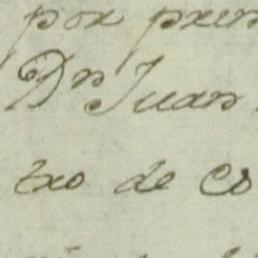 por pren
Dn Juan
txo de co